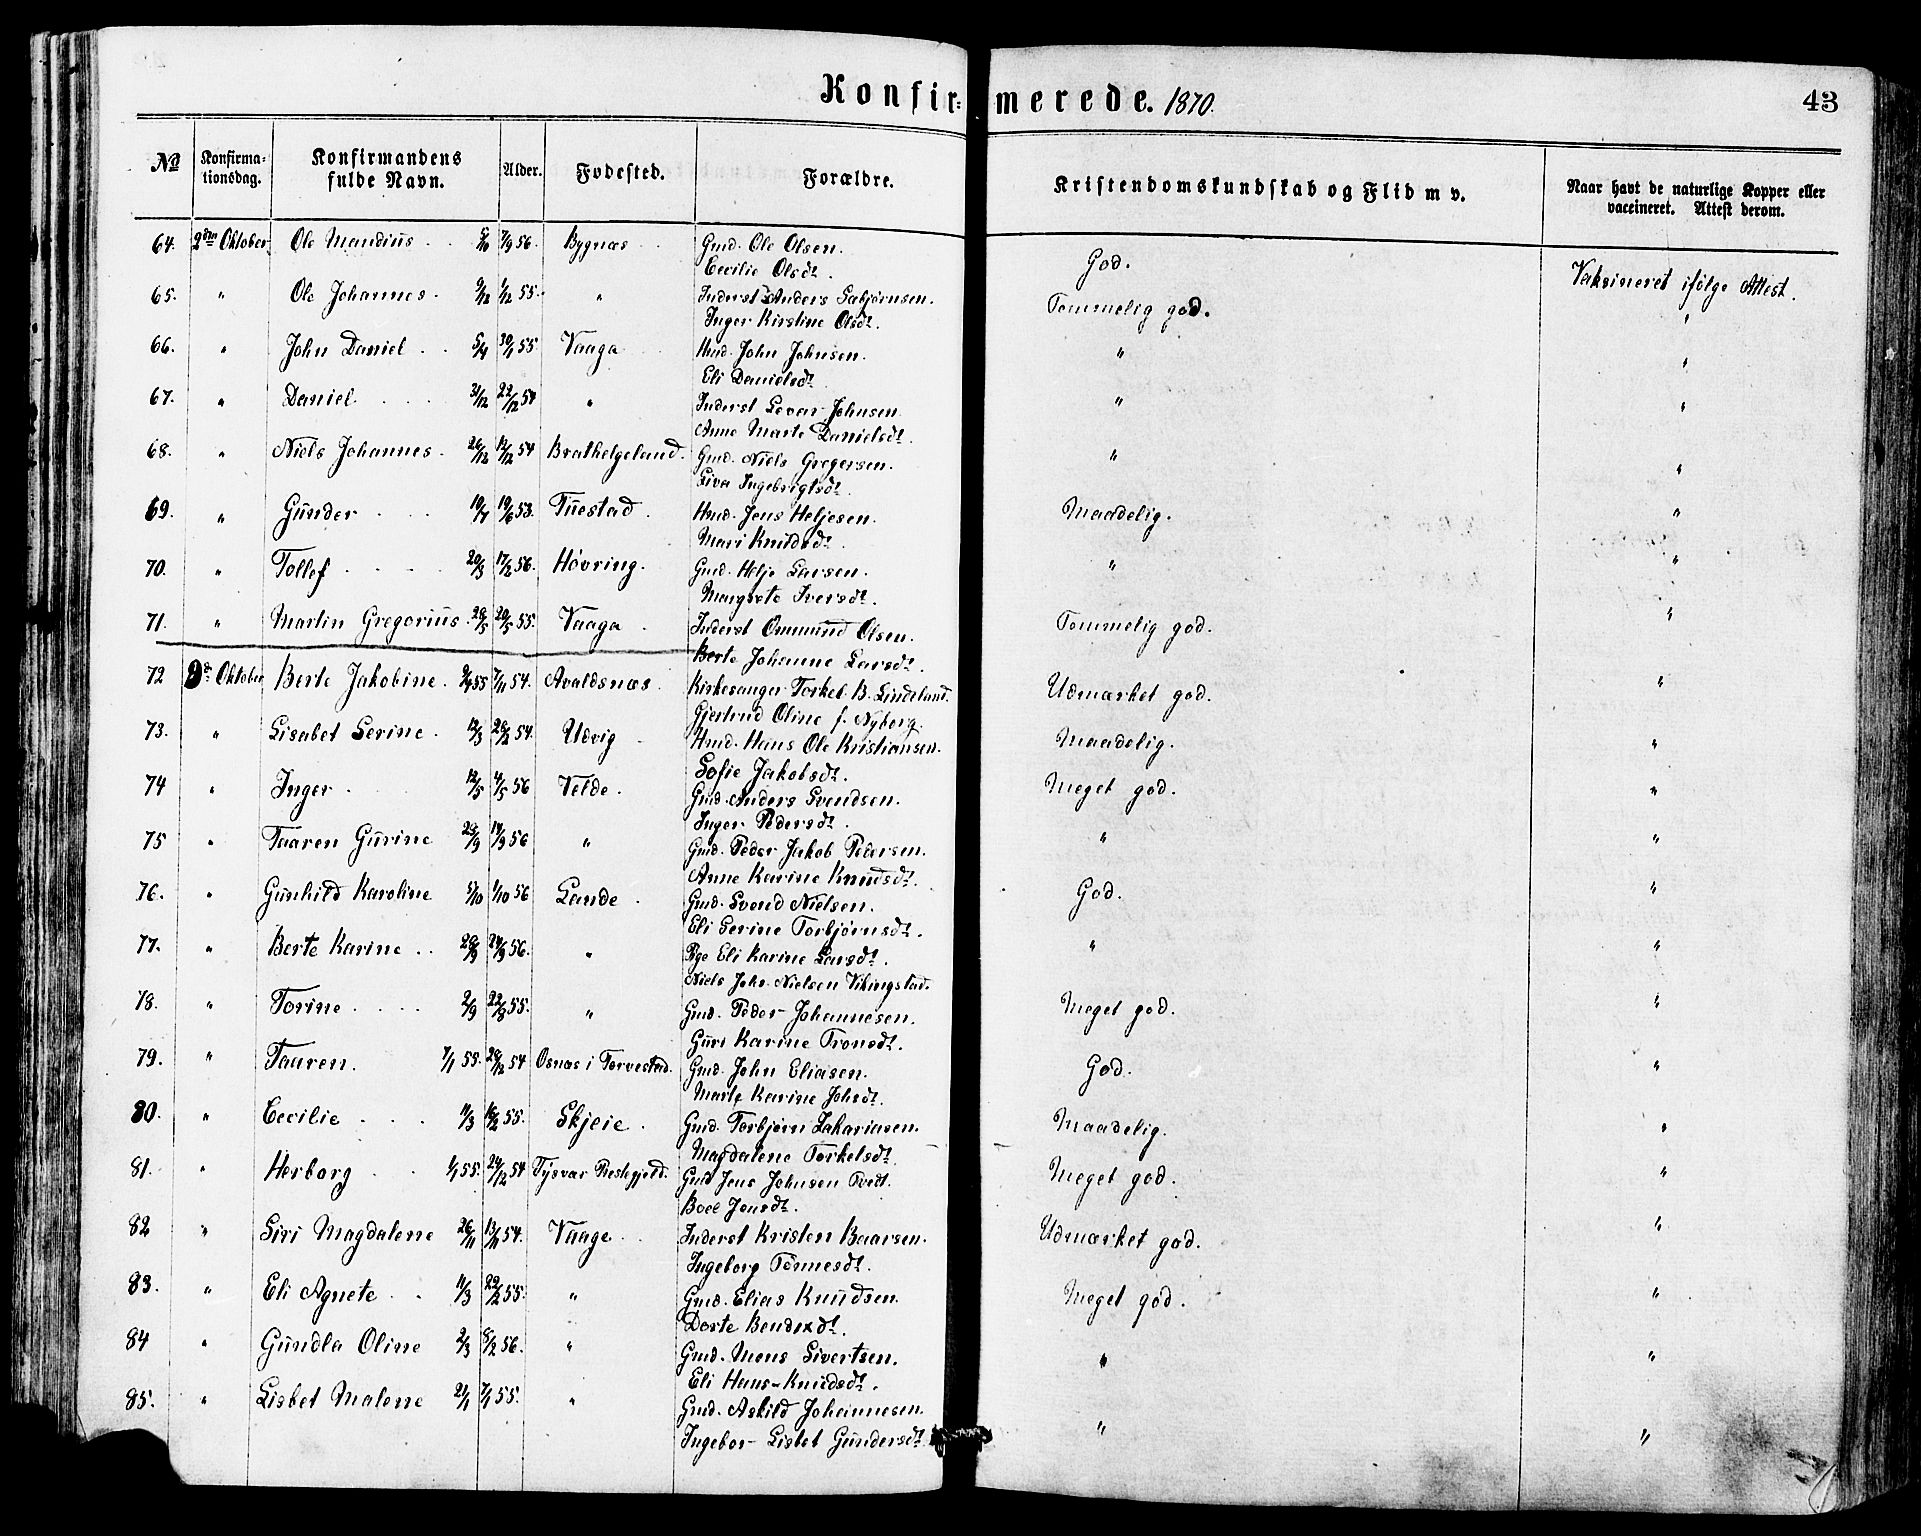 Konfirmerede. 1870. 43
No Konfirmationsdag. Konfirmandens fulde Navn. Alder. Fødested. Forældre. Kristendomskundskab og Flid m v. Naar havt de naturlige Kopper eller vaccineret. Attest derom.
64. 2den Oktober Ole Mandius 7/9 56. Bygnæs Gmd. Ole Olsen. God. Vaksineret ifølge Attest.
Cecilie Olsdt.
65. " Ole Johannes 9/12 1/12 55. " Inderst Anders Gabjørnsen. Temmelig god. "
Inger Kirstine Olsdt.
66. " John Daniel 5/4 30/1 55 Vaaga Hmd. John Johnsen. " "
Eli Danielsdt.
67. " Daniel 31/12 22/12 54 " Inderst Sever Johnsen. " "
Anne Marte Danielsdt.
68. " Niels Johannes 26/12 12/12 54 Brathelgeland. Gmd. Niels Gregersen. " "
Siva Ingebrigtsdt.
69. " Gunder 10/7 19/6 53. Tuestad. Hmd. Jens Heljesen. Maadelig. "
Mari Knudsdt.
70. " Tollef 20/3 17/2 56. Høvring. Gmd. Helje Larsen. " "
Margrete Iversdt.
71. " Martin Gregorius 28/5 20/5 55. Vaaga Inderst Ommund Olsen. Temmelig god. "
Berte Johanne Larsdt.
72 9de Oktober Berte Jakobine 9/4 55 7/11 54. Avaldsnæs. Kirkesanger Torkel B. Lindeland. Udmærket god. "
Gjertrud Oline f. Nyberg.
73. " Lisabet Serine 12/3 28/2 54. Udvig Hmd. Hans Ole Kristiansen. Maadelig. "
Sofie Jakobsdt.
74 " Inger 12/5 4/5 56 Velde. Gmd. Anders Svendsen. Meget god. "
Inger Pedersdt.
75 " Taaren Gurine 23/9 14/9 56 " Gmd. Peder Jakob Pedersen. " "
Anne Karine Knudsdt.
76. " Gunhild Karoline 5/10 1/10 56 Lande. Gmd. Svend Nielsen. God. "
Eli Serine Torbjørnsdt.
77. " Berte Karine 28/9 24/9 56. " Pge Eli Karine Larsdt. " "
Niels Johs. Nielsen Vikingstad.
78. " Torine 2/9 22/8 55. " Gmd. Peder Johannesen. Meget god. "
Guri Karine Tronsdt.
79. " Taaren. 7/1 55. 29/12 54 Osnæs i Torvestad. Gmd. John Eliasen. God. "
Marte Karine Johsdt.
80. " Cecilie 11/3 16/2 55. Skjeie. Gmd. Torbjørn Zakariasen. Maadelig. "
Magdalene Torkelsdt.
81. " Herborg 1/1 55. 24/12 54 Tysvær Prestegjeld. Gmd Jens Johnsen Tvedt. Meget god. "
Boel Jensdt.
82 " Siri Magdalene 26/11 13/11 54. Vaage Inderst Kristen Baarsen. Udmærket god. "
Ingeborg Tønnesdt.
83. " Eli Agnete 11/3 22/2 55. " Gmd. Elias Knudsen. Meget god. "
Dorte Bendixdt.
84 " Gundla Oline 2/3 8/2 56. " Gmd. Mons Sivertsen. " "
Eli Hans-Knudsdt.
85. " Lisbet Malene 21/1 7/1 55. " Gmd. Askild Johannesen. " "
Ingebor- Lisbet Gundersdt.